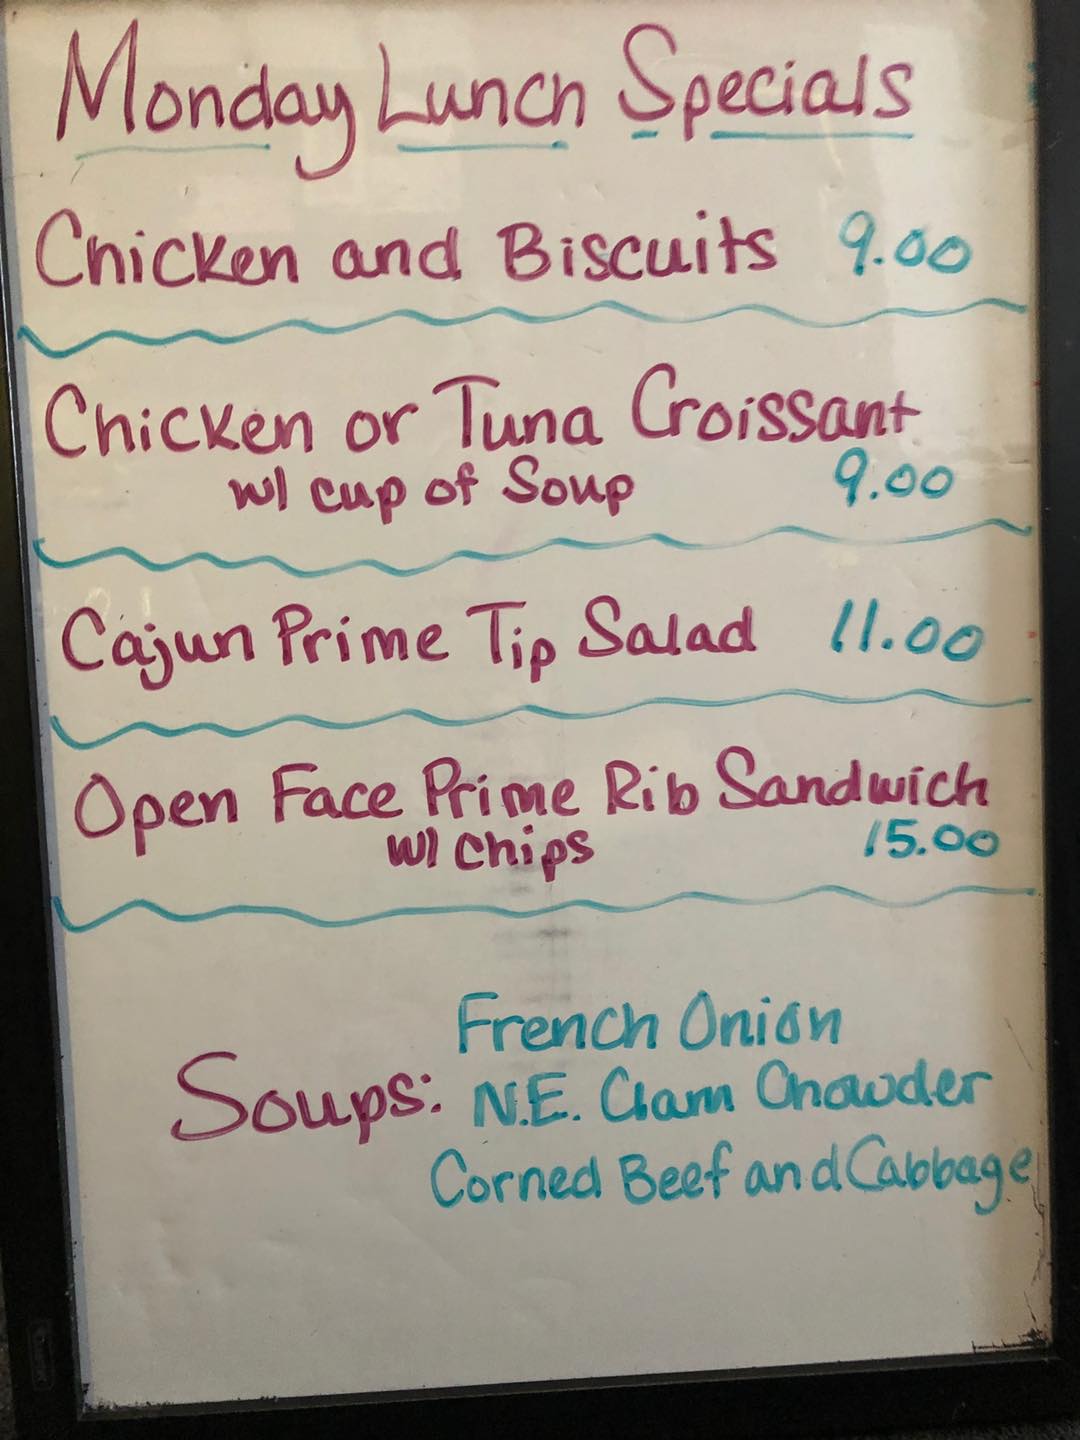 Monday Lunch Specials
Chicken and Biscuits 9.00
Chicken or Tuna Croissant
w/ cup of Soup 9.00
Cajun Prime Tip Salad 11.00
Open Face Prime Rib Sandwich
w/ Chips 15.00
French Onion
Soups: N.E. Clam Chowder
Corned Beef and Cabbage